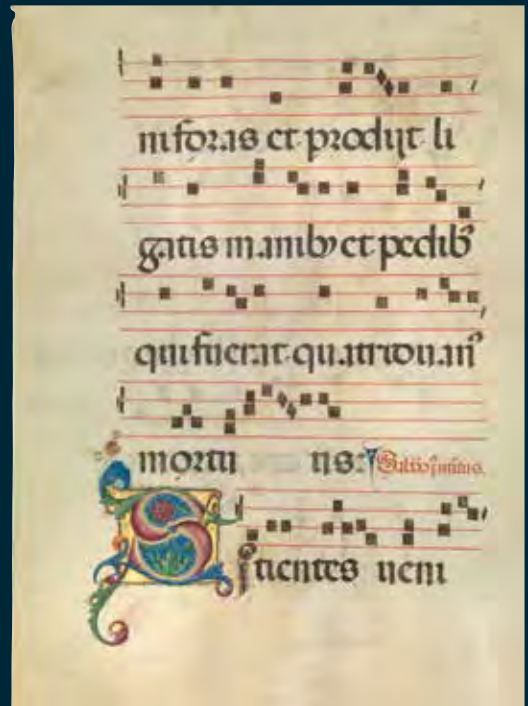 ni foras et prodijt li
gatis manib⁹ et pedib⁹
qui fuerat quatriduan⁹
mortu us:
Sitientes ueni